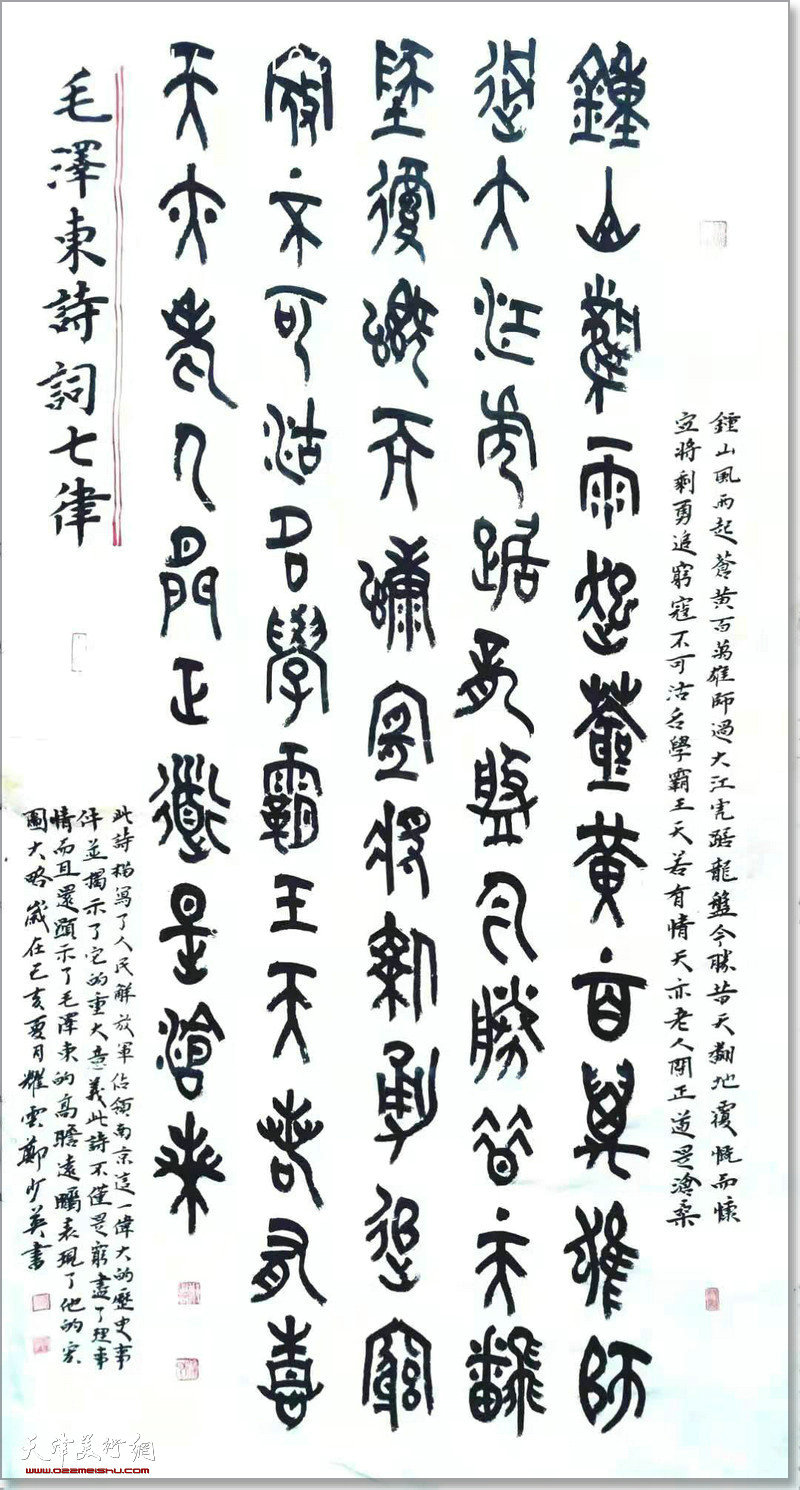 鍾山風雨起蒼黃百萬雄師過大江虎踞龍盤今勝昔天翻地覆慨而慷
宜將剩勇追窮寇不可沽名學霸王天若有情天亦老人間正道是滄桑
鍾山風雨起蒼黃百萬雄師
過大江虎踞龍盤今勝昔天翻
地覆慨而慷宜將剩勇追窮
寇不可沽名學霸王天若有情
天亦老人間正道是滄桑
毛澤東詩詞七律
此詩描寫了人民解放軍佔領南京這一偉大的歷史事
件並揭示了它的重大意義此詩不僅是窮盡了理事
情而且還顯示了毛澤東的高瞻遠矚表現了他的宏
圖大略歲在己亥夏月耀雲鄭少英書
天津美術網
www.022meishu.com